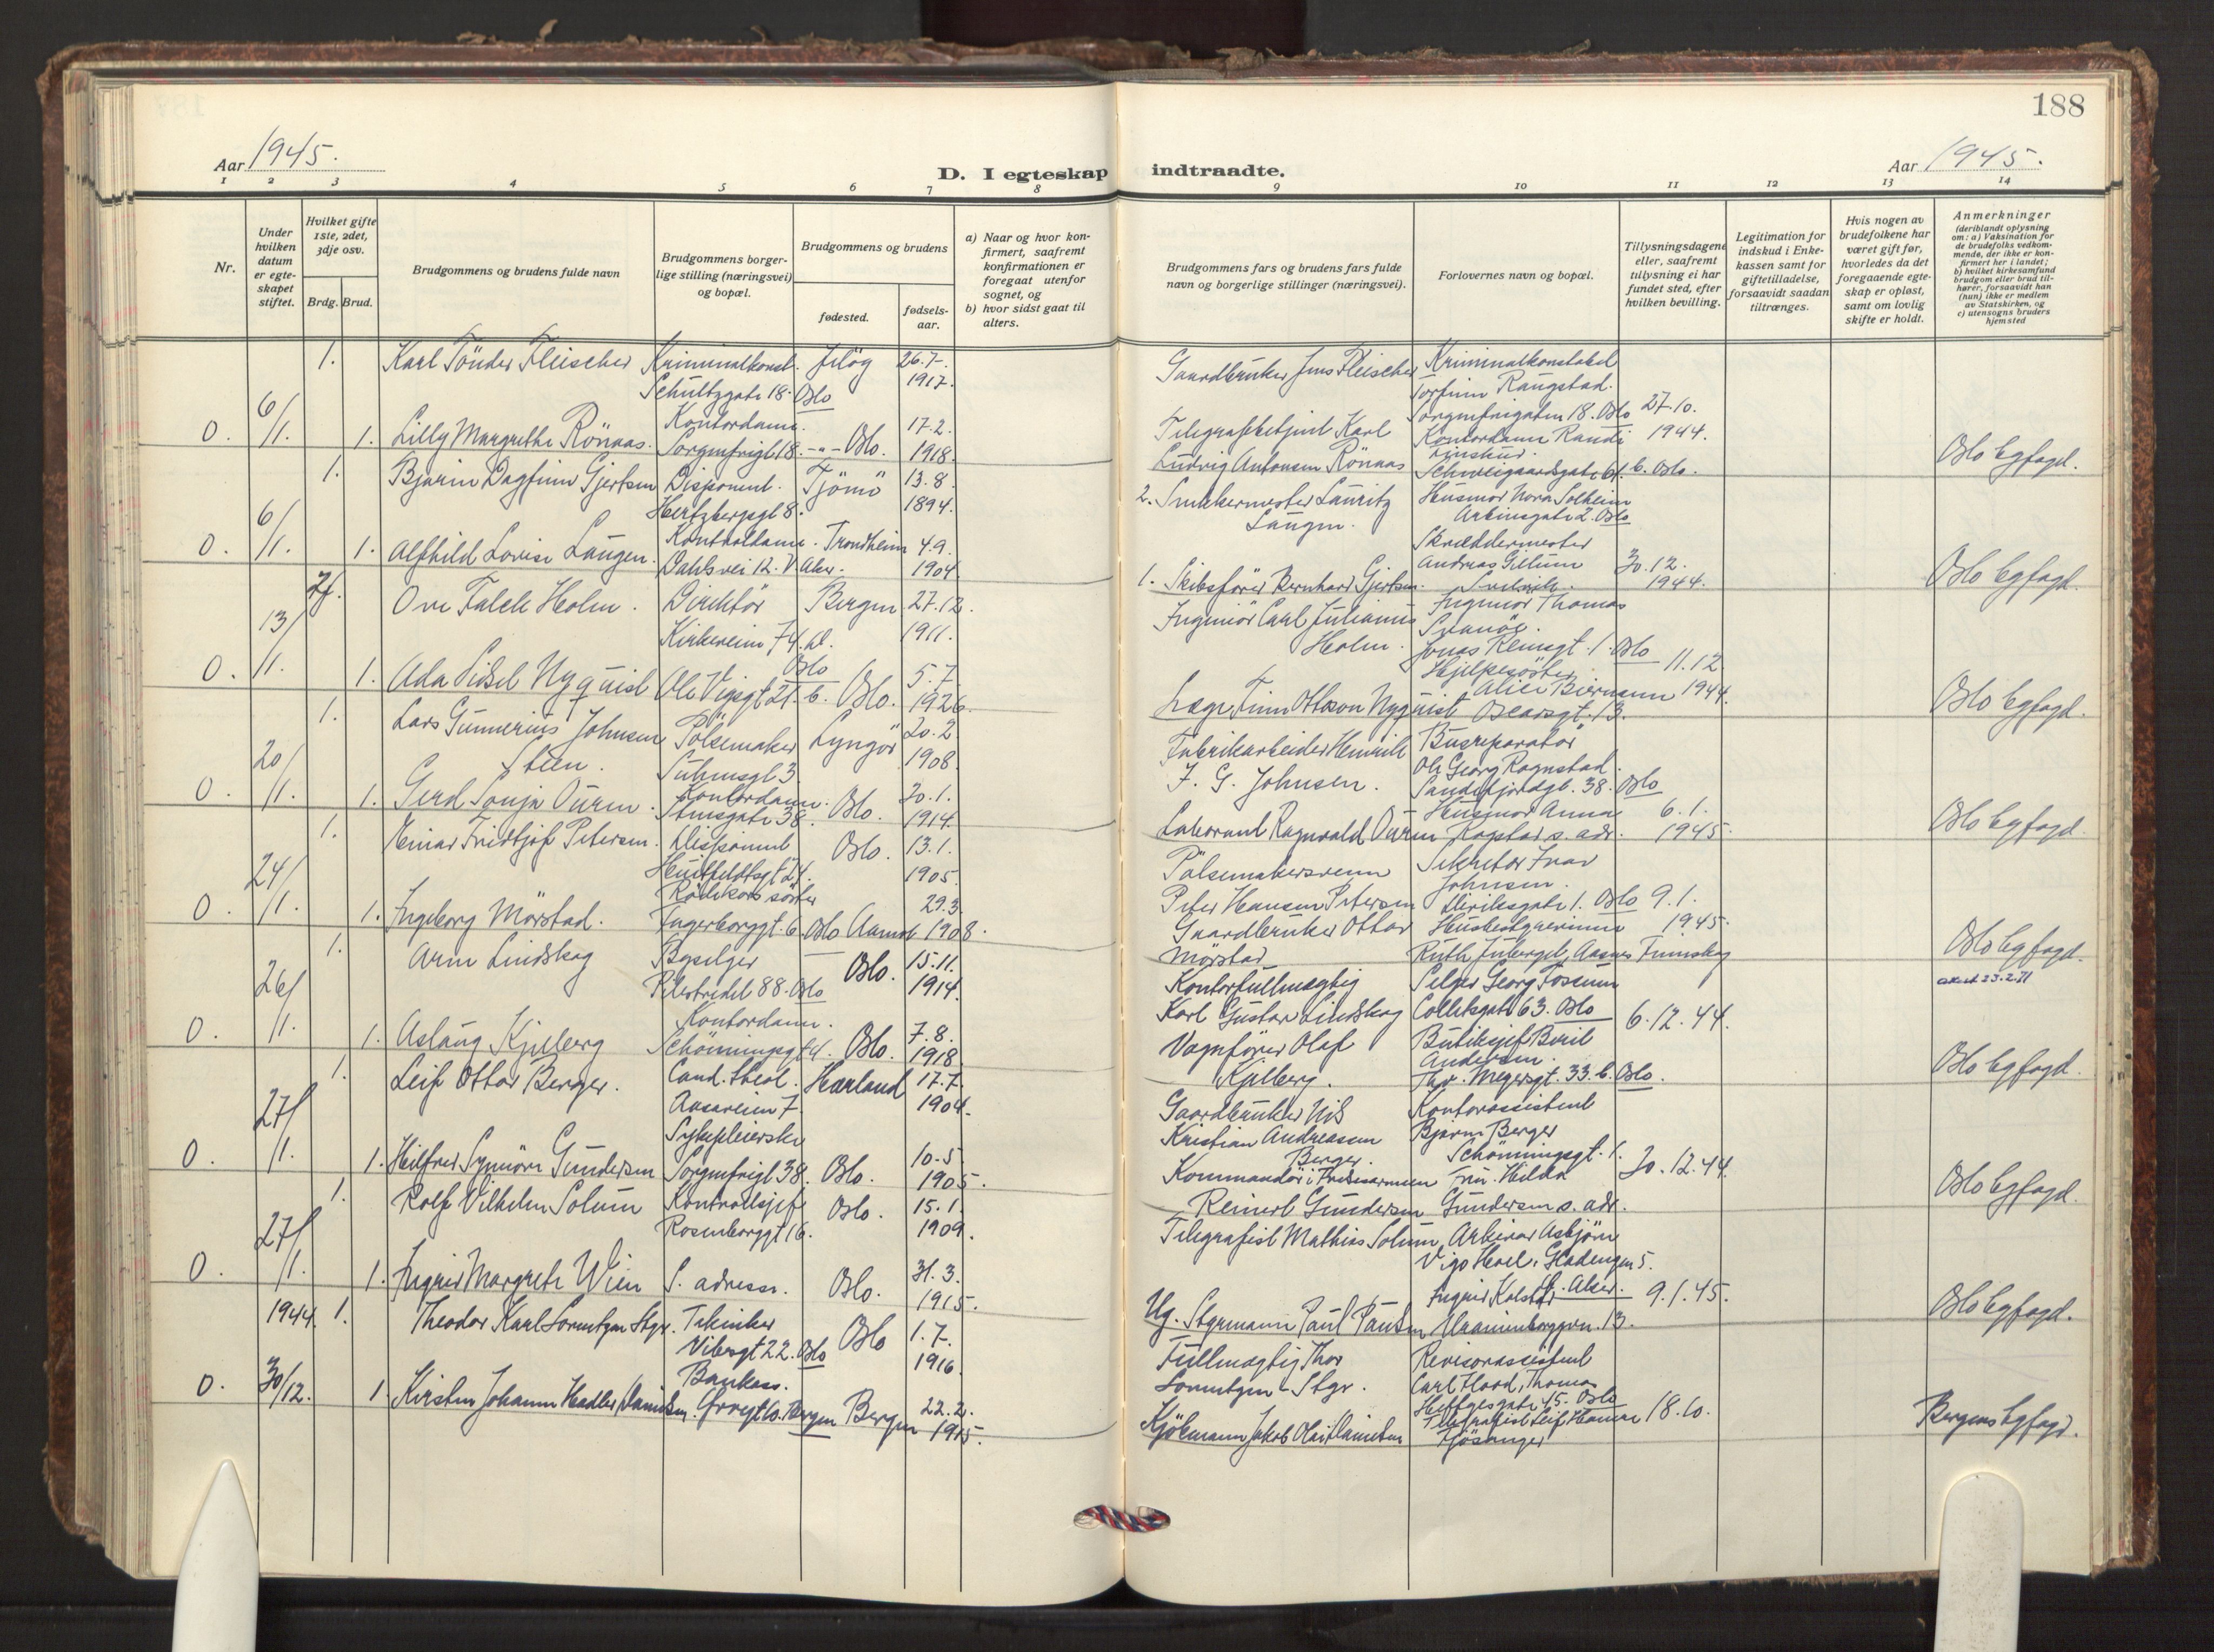 188
Aar 1945.
D. I egteskap indtraadte.
Aar 1945.
1 2 3 4 5 6 7 8 9 10 11 12 13 14
Nr.
Under hvilken datum er egteskapet stiftet.
Hvilket gifte 1ste, 2det, 3dje osv.
Brdg. Brud.
Brudgommens og brudens fulde navn
Brudgommens borgerlige stilling (næringsvei) og bopæl.
Brudgommens og brudens
fødested.
fødselsaar.
a) Naar og hvor konfirmert, saafremt konfirmationen er foregaat utenfor sognet, og
b) hvor sidst gaat til alters.
Brudgommens fars og brudens fars fulde navn og borgerlige stillinger (næringsvei).
Forlovernes navn og bopæl.
Tillysningsdagene eller, saafremt tillysning ei har fundet sted, efter hvilken bevilling.
Legitimation for indskud i Enkekassen samt for giftetilladelse, forsaavidt saadan tiltrænges.
Hvis nogen av brudefolkene har været gift før, hvorledes da det foregaaende egteskap er opløst, samt om lovlig skifte er holdt.
Anmerkninger (deriblandt oplysning om: a) Vaksination for de brudefolks vedkommende, der ikke er konfirmert her i landet; b) hvilket kirkesamfund brudgom eller brud tilhører, forsaavidt han (hun) ikke er medlem av Statskirken, og c) utensogns bruders hjemsted
1. Karl Tönder Fleischer Kriminalkonst. Jelöy 26.7.
Schultzgate 18. Oslo 1917.
Gaardbruker Jens Fleischer Kriminalkonstabel
Torfinn Raugstad.
Sorgenfrigaten 18. Oslo 27.10.
6/1. Kontordame. 17.2.
O. 1. Lilly Margrethe Rönaas. Sorgenfrigt 18. -"- Oslo. 1918.
Telegrafbetjent Karl Kontordame Randi 1944.
Ludvig Antonsen Rönaas Schweigaardsgate 61. b. Oslo.
Oslo byfogd.
1. Bjarne Dagfinn Gjertsen Disponent. Tjömö 13.8.
Hertzbergsgt 8. 1894.
2. Snekkermester Lauritz Husmor Nora Solheim
Langen. Arbinsgate 2. Oslo
6/1. Kontordame. Trondheim 4.9.
O. 1. Alfhild Lovise Langen. Dahls vei 12. V. Aker. 1904
Skræddermester
Andreas Gillum 30.12.
1. Skibsförer Bernhard Gjertsen. 1944.
Oslo byfogd.
2. Ove Falck Holm. Direktör Bergen 27.12.
Kirkeveien 74. Oslo 1911.
Ingeniör Carl Julianus Ingeniör Thomas
Holm. Svanöe.
Jonas Reinsgt. 1. Oslo
13/1. 5.7.
O. 1. Ada Sidsel Nyquist Ole Vigsgt 21. b. Oslo. 1926.
Hjelpesöster 11.12.
Læge Finn Ottoson Nyquist Alice Biermann 1944.
Oscarsgt. 13.
Oslo byfogd.
1. Lars Gunnerius Johnsen Pölsemaker Lyngör 20.2.
Steen. Suhmsgt 3. 1908.
Fabrikarbeider Henrik Busreparatör
F. G. Johnsen. Ole Georg Rognstad.
Sandefjordgt. 38. Oslo
20/1. Kontordame. 30.1.
O. 1. Gerd Sonja Ouren. Stensgate 38. Oslo. 1914.
Husmor Anna 6.1.
Laborant Ragnvald Ouren Rogstad s. adr. 1945.
Oslo byfogd.
1. Reinar Fridtjof Petersen. Disponent Oslo. 13.1.
Huitfeldtsgt 24. 1905.
Pölsemakersvenn Sekretær Ivar
Peter Hansen Petersen Johnsen.
24/1. Röde kors söster 29.3.
O. 1. Ingeborg Mörstad. Fagerborggt. 6. Oslo Aamot 1908.
Oslo 9.1.
Gaardbruker Ottar Husbestyrerinne 1945.
Mörstad Ruth
Oslo byfogd.
1. Arne Lindskog Byselger Oslo. 15.11.
Pilestredet 88. Oslo 1914.
Kontorfullmægtig Selger Georg Fossum
Karl Gustav Lindskog Colletsgate 63. Oslo
26/1. Kontordame. 7.8.
O. 1. Aslaug Kjelberg Schönningsgt 4. Oslo. 1918
6.12.44.
Vognförer Olaf Butiksjef Beril
Kjelberg. Andersen.
Thv. Meyersgt. 33. b. Oslo.
Oslo byfogd.
1. Leif Ottar Berger. Cand. theol. Hærland 17.7.
Aasaveien 7. 1904.
Gaardbruker Nils Kontorassistent
Kristian Andreassen Bjarne Berger
Berger. Schönningsgt. 1.
27/1. Sykepleierske 10.5.
O. 1. Hilfred Synnöve Gundersen Sorgenfrigt 38. Oslo. 1905.
Kommandör i Frelsesarmeen Fru Hilda 30.12.44.
Reinert Gundersen Gundersen s. adr.
Oslo byfogd.
1. Rolf Vilhelm Solum Kontrollsjef Oslo. 15.1.
Rosenborggt 16. 1909.
Telegrafist Mathias Solum Arkivar Asbjörn
Vigo Hoel.
27/1. 31.3.
O. 1. Ingrid Margrete Wien S. adresse. Oslo. 1915.
Ingrid Kolstad 9.1.45.
Ug. Styrmann Paul Paulsen Uranienborggvn. 13.
Oslo byfogd.
1944. 1. Theodor Karl Lorentzen Styr. Tekniker Oslo 1.7.
Vibesgt 22. Oslo 1916.
Fullmægtig Thor Revisorassistent
Lorentzen-Styr. Carl Hood, Thomas
Heftyesgate 45. Oslo
30/12. Bankass. 22.2.
O. 1. Kirsten Johanne Hadler Danielsen. Bergen Bergen 1915.
Telegrafist Leif Hansen 18.10.
Kjöbmann Jakob Olai Danielsen Fjösanger
Bergens byfogd.